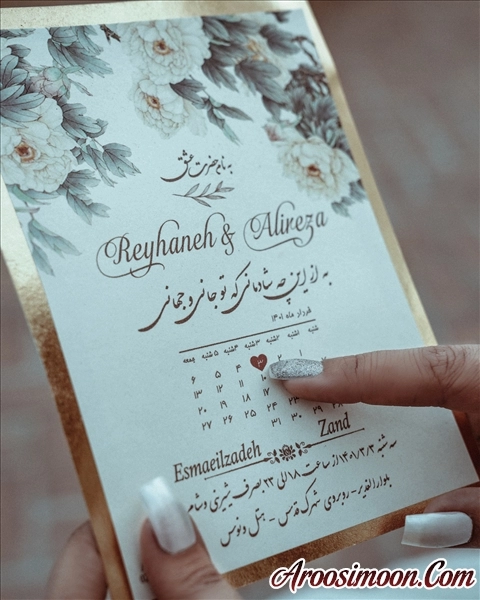 به نام حضرت عشق
Reyhaneh & Alireza
به از این چه شادمانی که تو جانی و جهانی
خرداد ماه ۱۴۰۱
شنبه ۱شنبه ۲شنبه ۳شنبه ۴شنبه ۵شنبه جمعه
۱ ۲ ۳ ۴ ۵ ۶
۱۰ ۱۱ ۱۲ ۱۳
۱۷ ۱۸ ۱۹ ۲۰
۲۴ ۲۵ ۲۶ ۲۷
Esmaeilzadeh Zand
سه شنبه ۱۴۰۱/۳/۳ از ساعت ۱۸ الی ۲۳ بصرف شیرینی و شام
بلوار الغدیر - روبروی شهرک قدس - هتل ونوس
Aroosimoon.Com